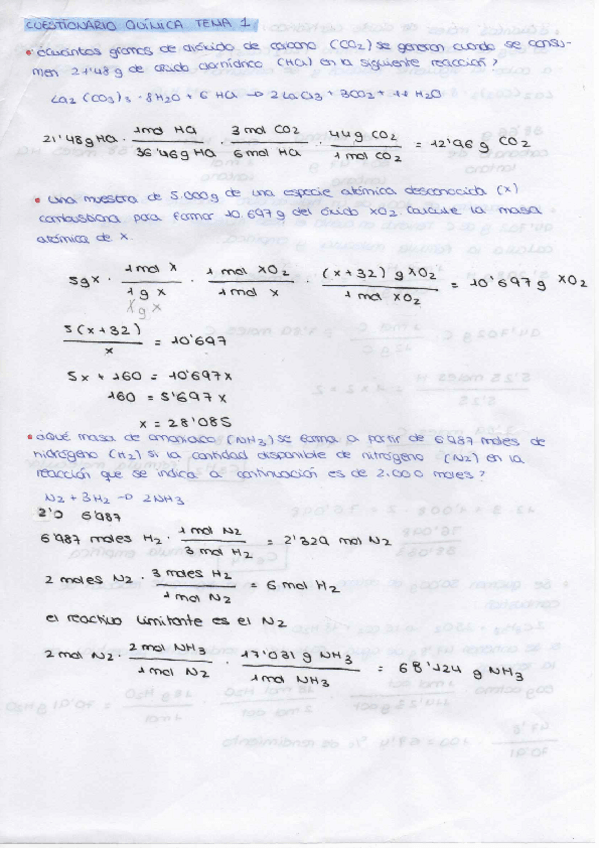 CUESTIONARIO QUÍMICA TEMA 1.
• ¿cuántos gramos de dióxido de carbono (CO2) se generan cuando se consu-
men 21'48 g de ácido clorhídrico (HCl) en la siguiente reacción?
La2 (CO3)3 · 8H2O + 6 HCl → 2LaCl3 + 3CO2 + 11 H2O
21'48 g HCl · 1 mol HCl / 36'46 g HCl · 3 mol CO2 / 6 mol HCl · 44 g CO2 / 1 mol CO2 = 12'96 g CO2
• una muestra de 5.000g de una especie atómica desconocida (X)
combustiona para formar 10.697 g del óxido XO2. calcule la masa
atómica de X.
5g X · 1 mol X / 1 g X · 1 mol XO2 / 1 mol X · (x+32) g XO2 / 1 mol XO2 = 10'697 g XO2
X g X
5(x+32) / x = 10'697
5x + 160 = 10'697x
160 = 5'697x
x = 28'085
• ¿Qué masa de amoniaco (NH3) se forma a partir de 6'987 moles de
hidrógeno (H2) si la cantidad disponible de nitrógeno (N2) en la
reacción que se indica a continuación es de 2.000 moles?
N2 + 3H2 → 2NH3
2'0 6'987
6'987 moles H2 · 1 mol N2 / 3 mol H2 = 2'329 mol N2
2 moles N2 · 3 moles H2 / 1 mol N2 = 6 mol H2
el reactivo limitante es el N2
2 mol N2 · 2 mol NH3 / 1 mol N2 · 17'031 g NH3 / 1 mol NH3 = 68'124 g NH3